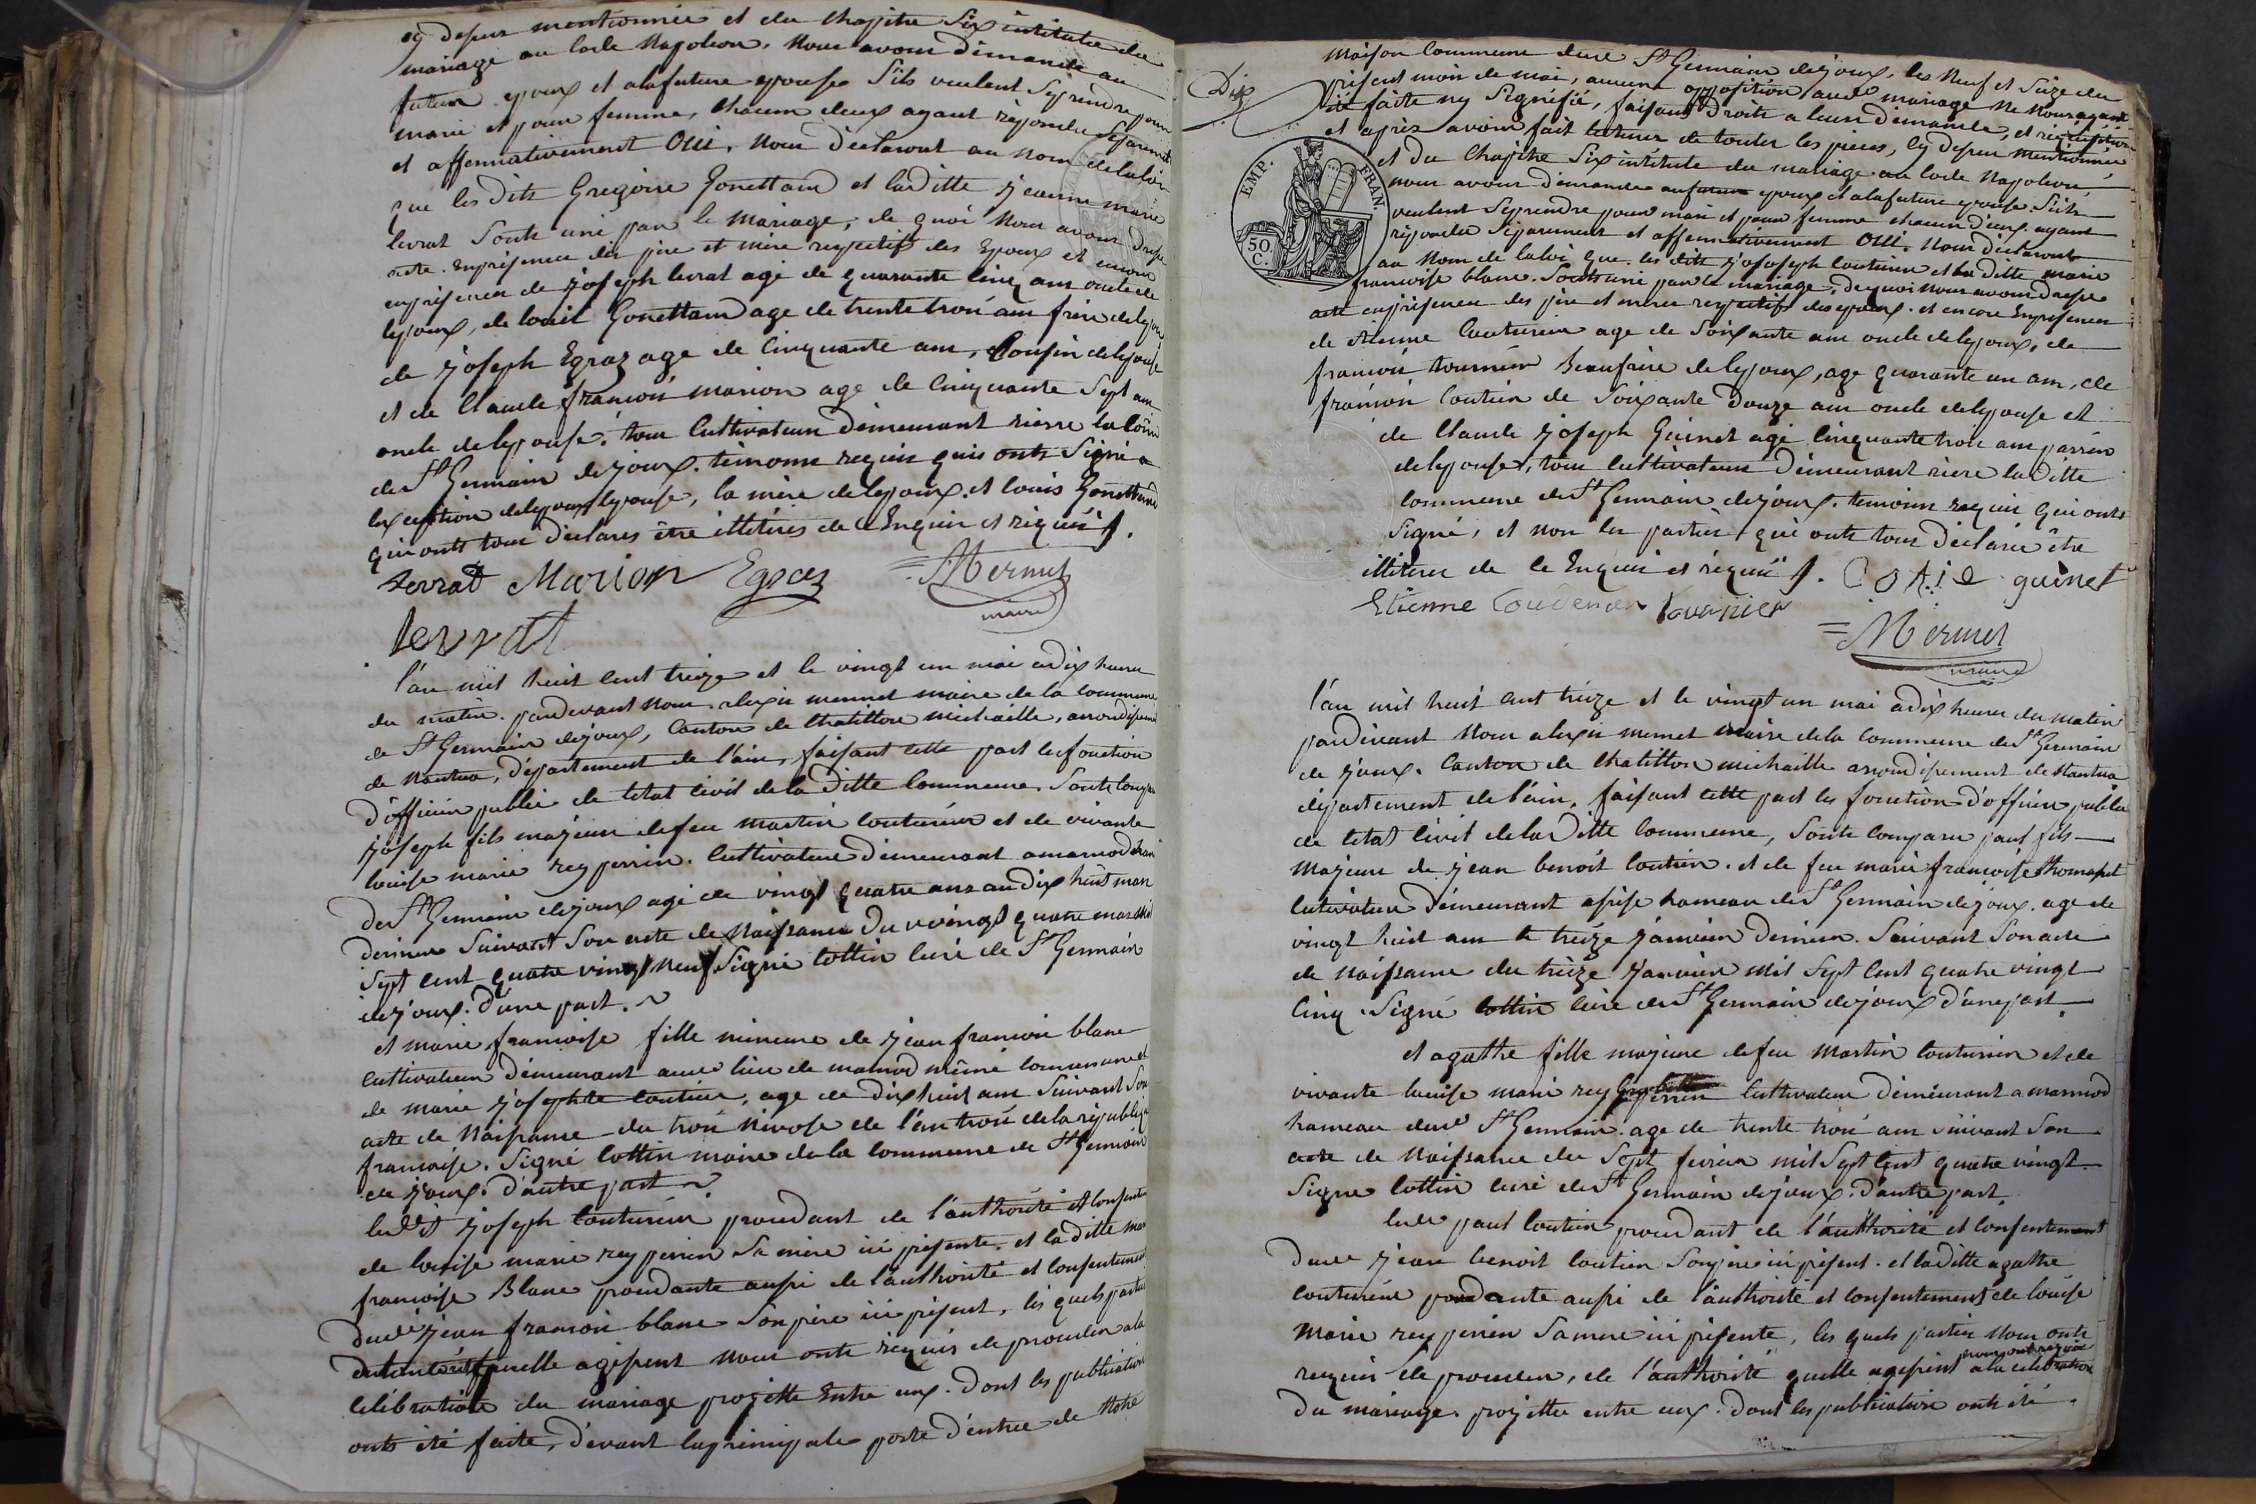 cy dessus mentionnée et du chapitre Six intitulé du
mariage au Code Napoleon. Nous avons demande au
futur epoux et a la future epouse S'ils veulent Se prendre pour
mari et pour femme, chacun deux ayant repondu Separement
et affermativement Oui. Nous déclarons au nom de la loi
que les dits Gregoire Gonettand et la ditte jeanne marie
levrat Sonts uni par le mariage, de quoi Nous avons dresse
acte. En présence des pere et mere respectifs des Epoux et encore
en présence de joseph levrat agé de quarante cinq ans oncle de
lepoux, de louis Gonettand age de trente trois ans frere de lepoux
de joseph Egraz age de Cinquante ans, Cousin de lepouse
et de Claude françois marion age de Cinquante Sept ans
oncle de lepouse. tous Cultivateurs demeurant riere la Comne
de St Germain de joux. temoins requis qui onts Signé a
lexception de lepouse, la mere de lepoux. et louis Gonettand
qui onts tous déclarés être illitérés de ce Enquis et réquis ./.
Levrat Marion Egraz =Mermet
maire
levrat
l'an mil huit cent treize et le vingt un mai a dix heures
du matin. pardevant Nous alexis mermet maire de la commune
de St Germain de joux, Canton de Chatillon michaille, arrondissement
de Nantua, département de l'ain, faisant cette part les fonction
d'officier public de létat civil de la ditte Commune. Sonts comparu
joseph fils majeur de feu martin couturier et de vivante
louise marie rey perrin. Cultivateur demeurant a marnod hameau
de St Germain de joux agé de vingt quatre ans au dix huit mars
dernier Suivant Son acte de Naissance du vingt quatre mars mil
Sept cent quatre vingt neuf Signé Cottin Curé de St Germain
de joux. d'une part.
et marie françoise fille mineure de jean françois blanc
Cultivateur demeurant audit lieu de marnod même commune et
de marie josephte coutier, age de dix huit ans Suivant Son
acte de Naissance du trois Nivose de l'an trois de la république
française. Signé Cottin maire de la commune de St Germain
de joux. d'autre part
ledit joseph Couturier procedant de l'authorité et Consentement
de louise marie rey perrin Sa mere ici présente. et la ditte marie
françoise Blanc procedante aussi de l'authorité et consentement
dudit jean françois blanc Son père ici présent, les quels parties
de lauthorité quelle agissent nous onts réquis de proceder a la
Célébration du mariage projetté Entre eux. Dont les publication
onts été faite, devant la principale porte d'entrée de Notre
Dix
Maison Commune dudit St Germain de joux, les Neuf et Seize du
présent mois de mai, aucune opposition audit mariage Ne Nous ayant
été faite ny Signéfié, faisant droite a leurs demande, et requisition
et après avoir fait lecture de toutes les pieces, cy dessus mentionnée
et du Chapitre Six intitulé du mariage au Code Napoleon,
nous avons demande au futur epoux et a la future epouse S'ils
veulent Se prendre pour mari et pour femme chacun d'eux ayant
répondu Séparement et affermativement Oui. Nous déclarons
au Nom de la loi que les dits joseph couturier et la ditte marie
françoise blanc. Sonts uni par le mariage, de quoi Nous avons dresse
acte en présence des pere et mere respectifs des epoux. et encore En présence
de etienne Couturier age de Soixante ans oncle de lepoux, de
françois tournier Beaufrère de lepoux, age quarante un ans, de
françois Coutier de Soixante Douze ans oncle de lepouse et
de Claude joseph Guinet agé Cinquante trois ans parrin
de lepouse, tous Cultivateurs demeurant riere la Ditte
commune de St Germain de joux. temoins requis qui onts
Signé, et non les parties qui onts tous déclarés être
illiterés de ce Enquis et réquis ./. COTIE guinet
Etienne Couderier tournier
=Mermet
maire
EMP. FRAN.
50 C.
l'an mil huit cent treize et le vingt un mai a dix heures du matin
pardevant Nous alexis mermet maire de la commune de St Germain
de joux. Canton de Chatillon michaille arrondissement de Nantua
département de l'ain, faisant cette part les fonction d'officier public
de létat Civil de la Ditte commune, Sonts Comparu paul fils
Majeur de jean benoit coutier. et de feu marie françoise thomasset
Cultivateur demeurant a hameau de St Germain de joux. age de
vingt huit ans le treize janvier dernier. Suivant Son acte
de Naissance du treize janvier mil Sept Cent quatre vingt
Cinq Signé Cottin Curé de St Germain de joux d'une part.
et agathe fille majeure de feu Martin Couturier et de
vivante louise marie rey perrin Cultivateur demeurant a marnod
hameau dudit St Germain. age de trente trois ans Suivant Son
acte de Naissance du Sept fevrier mil Sept Cent quatre vingt
Signé Cottin curé de St Germain de joux. d'autre part.
ledit paul Coutier procedant de l'authorité et Consentement
dudit jean benoit Coutier Son père ici présent. et la ditte agathe
Couturier procedante aussi de l'authorité et consentement de louise
Marie rey perrin Sa mere ici présente, les quels parties Nous onts
requis de proceder, de l'authorité quelle agissent nous ont requis a la celebration
Du mariage projetté entre eux. Dont les publication onts été